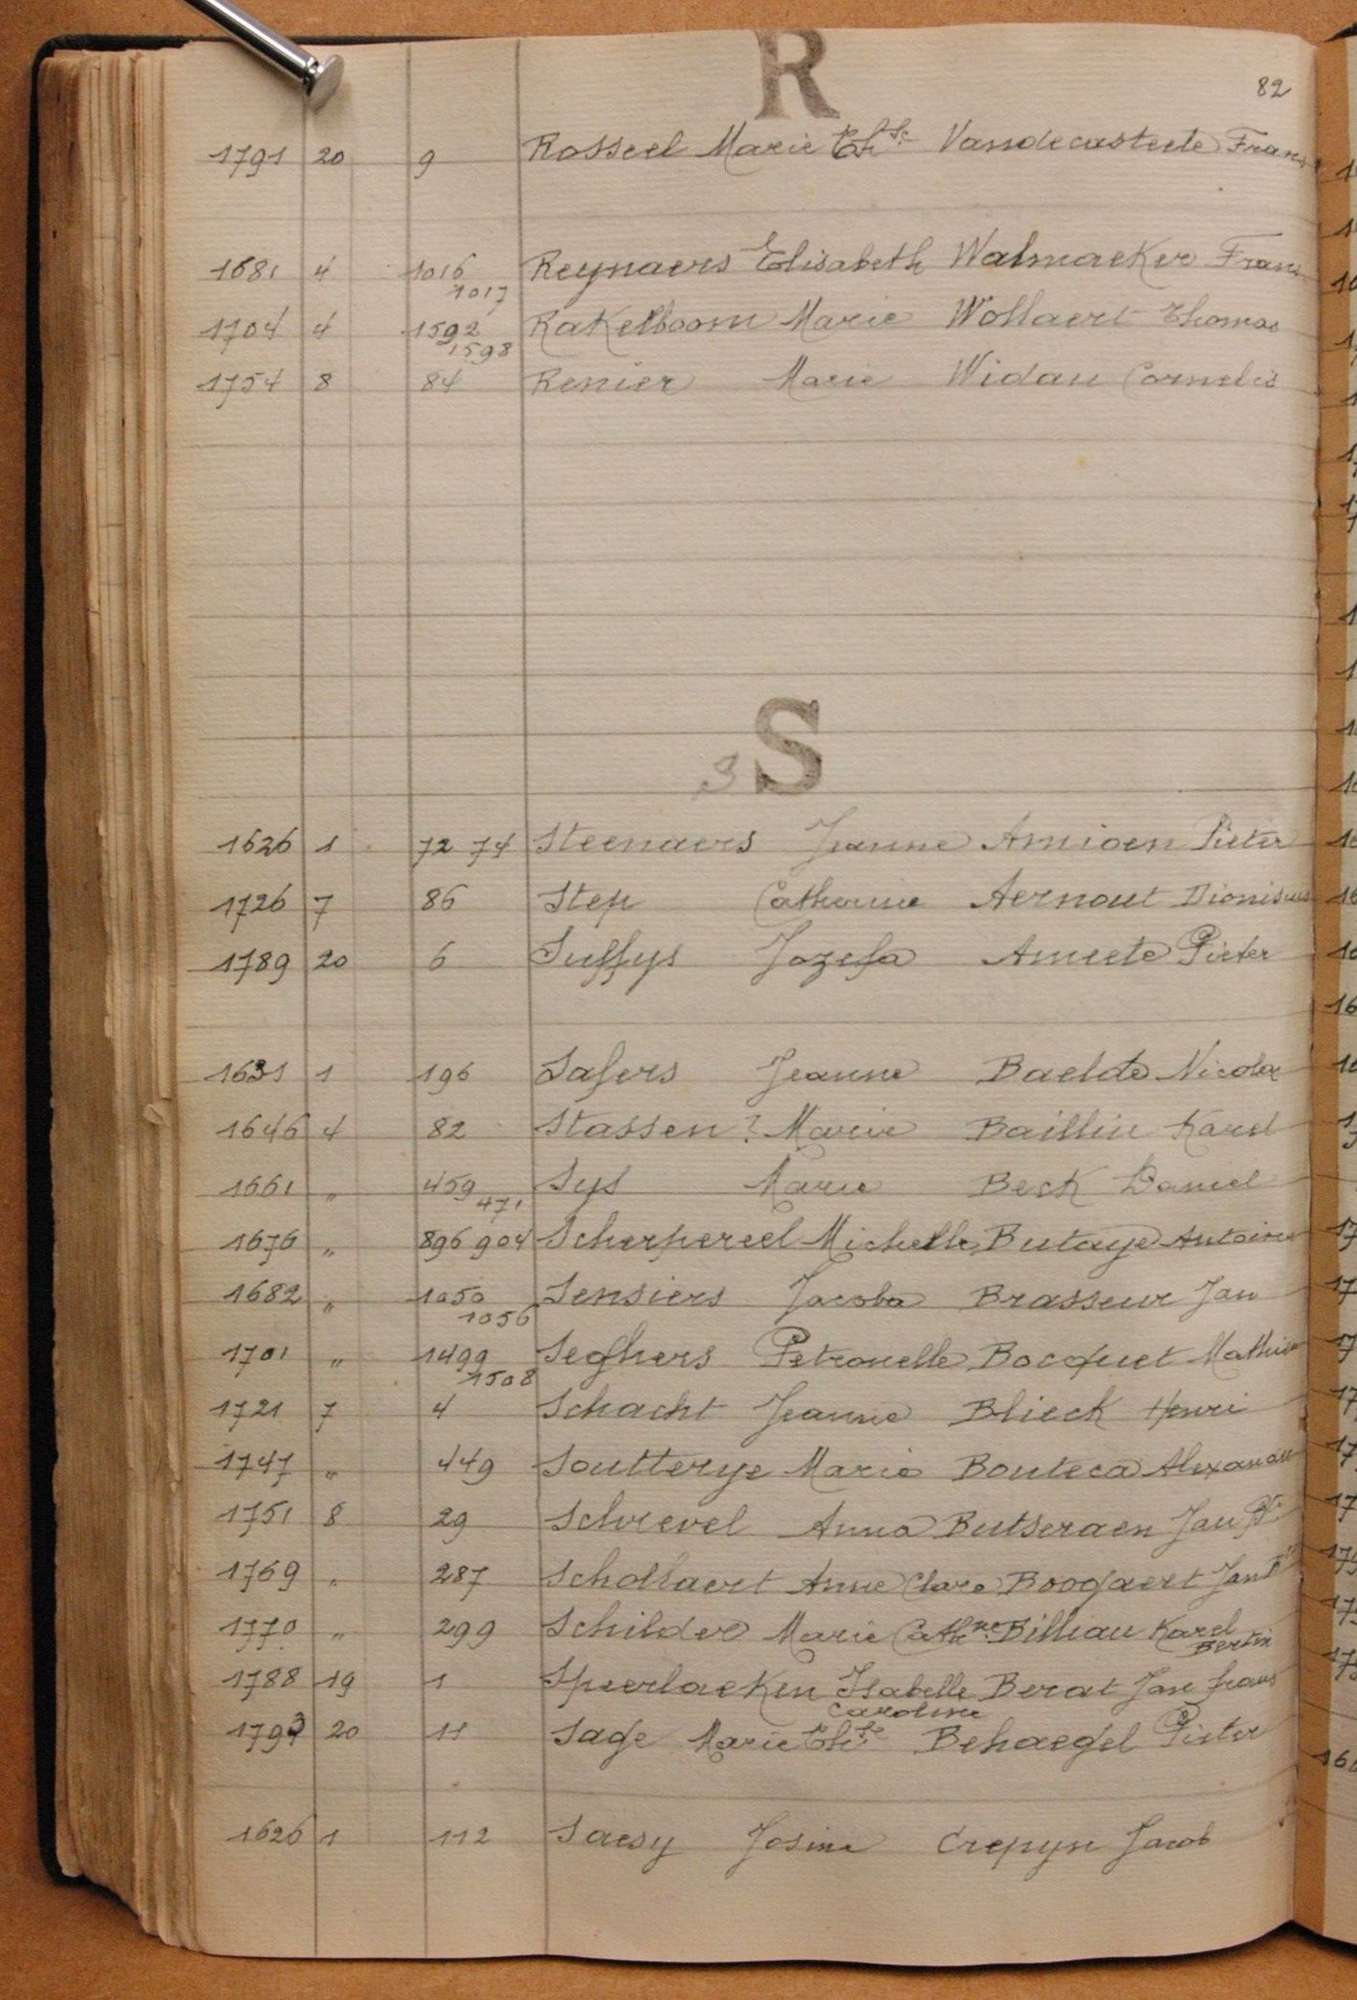 R
82
1791 20 9 Rosseel Marie Th.se Vandecasteele Frans
1681 4 1016 Reynaers Elisabeth Walmaeker Frans
1017
1704 4 1592 Rakelboom Marie Wollaert Thomas
1598
1754 8 84 Renier Marie Widau Cornelis
S S
1626 1 72 74 Steenaers Jeanne Amioen Pieter
1726 7 86 Step Catherine Aernout Dionisius
1789 20 6 Suffys Jozefa Ameele Pieter
1631 1 196 Safers Jeanne Baelde
1646 4 82 Stassen ? Marie Baillin Karel
1661 " 459 Sys Marie Beck Daniel
471
1676 " 896 904 Scherpereel Michelle Butaye Antoine
1682 " 1050 Sensiers Jacoba Brasseur Jan
1056
1701 " 1499 Seghers Petronelle Bocquet
1508
1721 7 4 Schacht Jeanne Blieck Henri
1747 " 449 Soutterye Marie Bouteca
1751 8 29 Schrevel Anna Butseraen Jan Bte
1769 " 287 Schollaert Anne Clare Boogaert Jan
1770 " 299 Schilder Marie Cathne Billiau Karel
Bertin
1788 19 1 Speerlaeken Isabelle Berat Jan frans
Caroline
1793 20 11 Sage Marie Th.se Behaegel Pieter
1626 1 112 Saesy Josine Crepyn Jacob